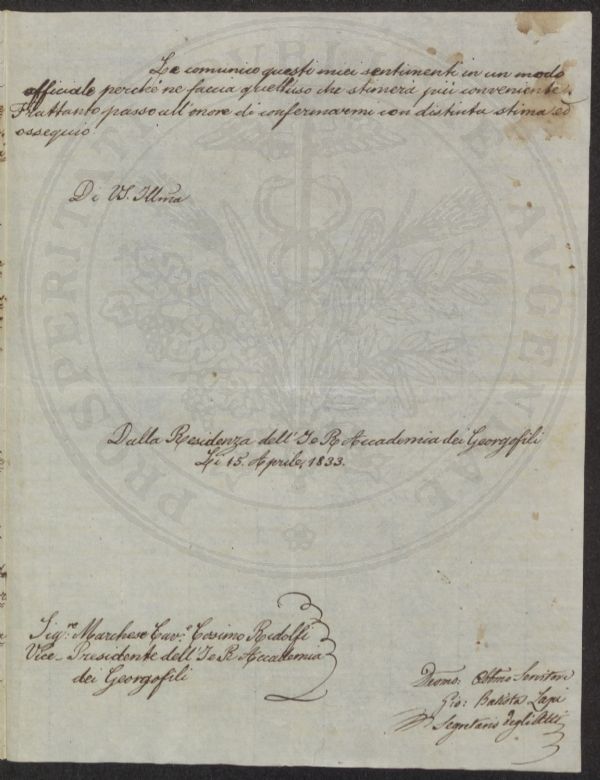 Le comunico questi miei sentimenti in un modo
officiale perché ne faccia quell'uso che stimerà più conveniente.
Frattanto passo all'onore di confermarmi con distinta stima ed
ossequio
Di VS. Illma
Dalla Residenza dell'I e R Accademia dei Georgofili
Li 15. Aprile, 1833.
Sigre Marchese Cave Cosimo Ridolfi
Vice-Presidente dell'I e R Accademia
dei Georgofili
Devmo: Obbmo Servitore
Gio: Batista Lapi
Segretario degli Atti
PROSPERITATI PUBLICAE AUGENDAE